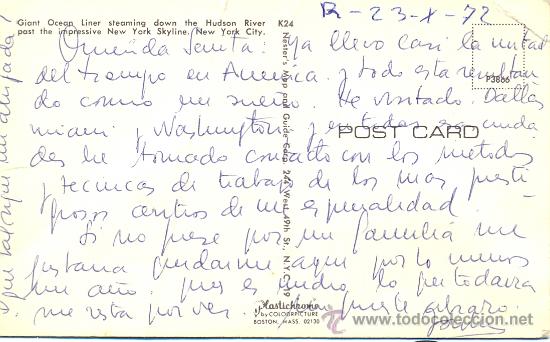 Giant Ocean Liner steaming down the Hudson River
past the impressive New York Skyline. New York City.
K24
R-23-X-72
Querida : Ya llevo casi la mitad
del tiempo en America y todo esta resultan
do como un sueño. He visitado Dallas
miami, Washington y en todas
des he tomado contacto con los metodos
y tecnicas de trabajo de los mas presti
giosos centros de mi especialidad.
Si no fuese por mi familia me
gustaria quedarme aqui por lo menos
un año. pues es mucho lo que todavia
me resta por ver. fuerte abrazo
P73866
POST CARD
Nester's Map and Guide Corp. 244 West 49th St., N.Y.C. 19
Plastichrome
by COLOURPICTURE
BOSTON, MASS. 02130
www.todocoleccion.net